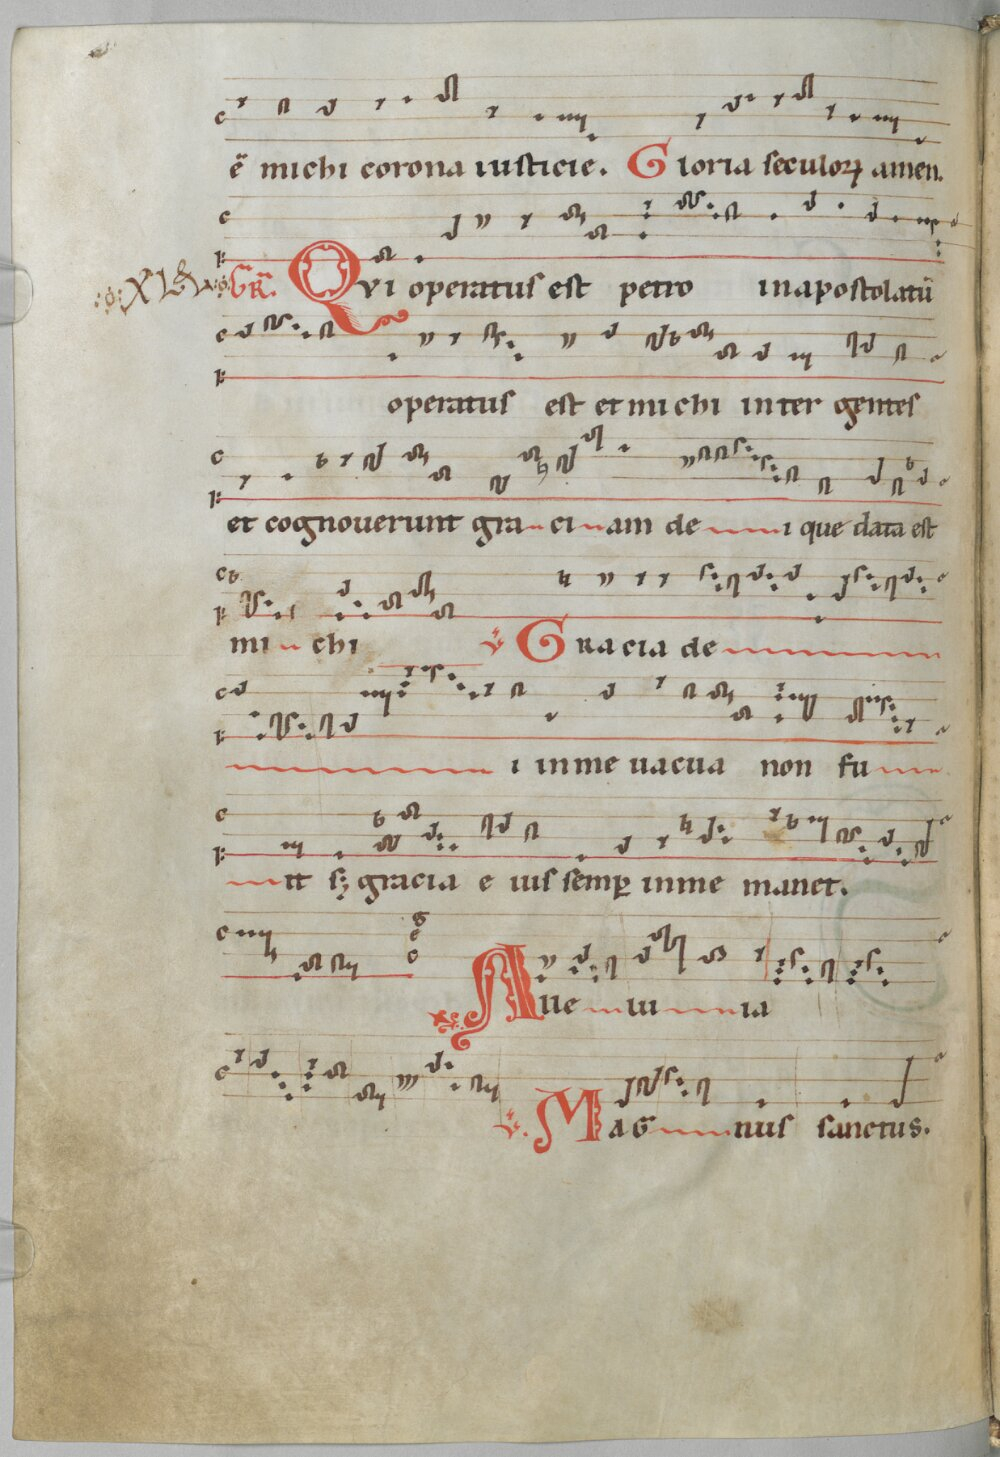 ē michi corona iusticie. Gloria seculoꝝ amen.
GR̄. Qvi operatus est petro in apostolatū
operatus est et michi inter gentes
et cognoverunt gra ci am de i que data est
mi chi ℣ Gracia de
i in me uacua non fu
it sꝫ gracia eius semꝑ in me manet.
Alle lu ia
℣. Mag nus sanctus.